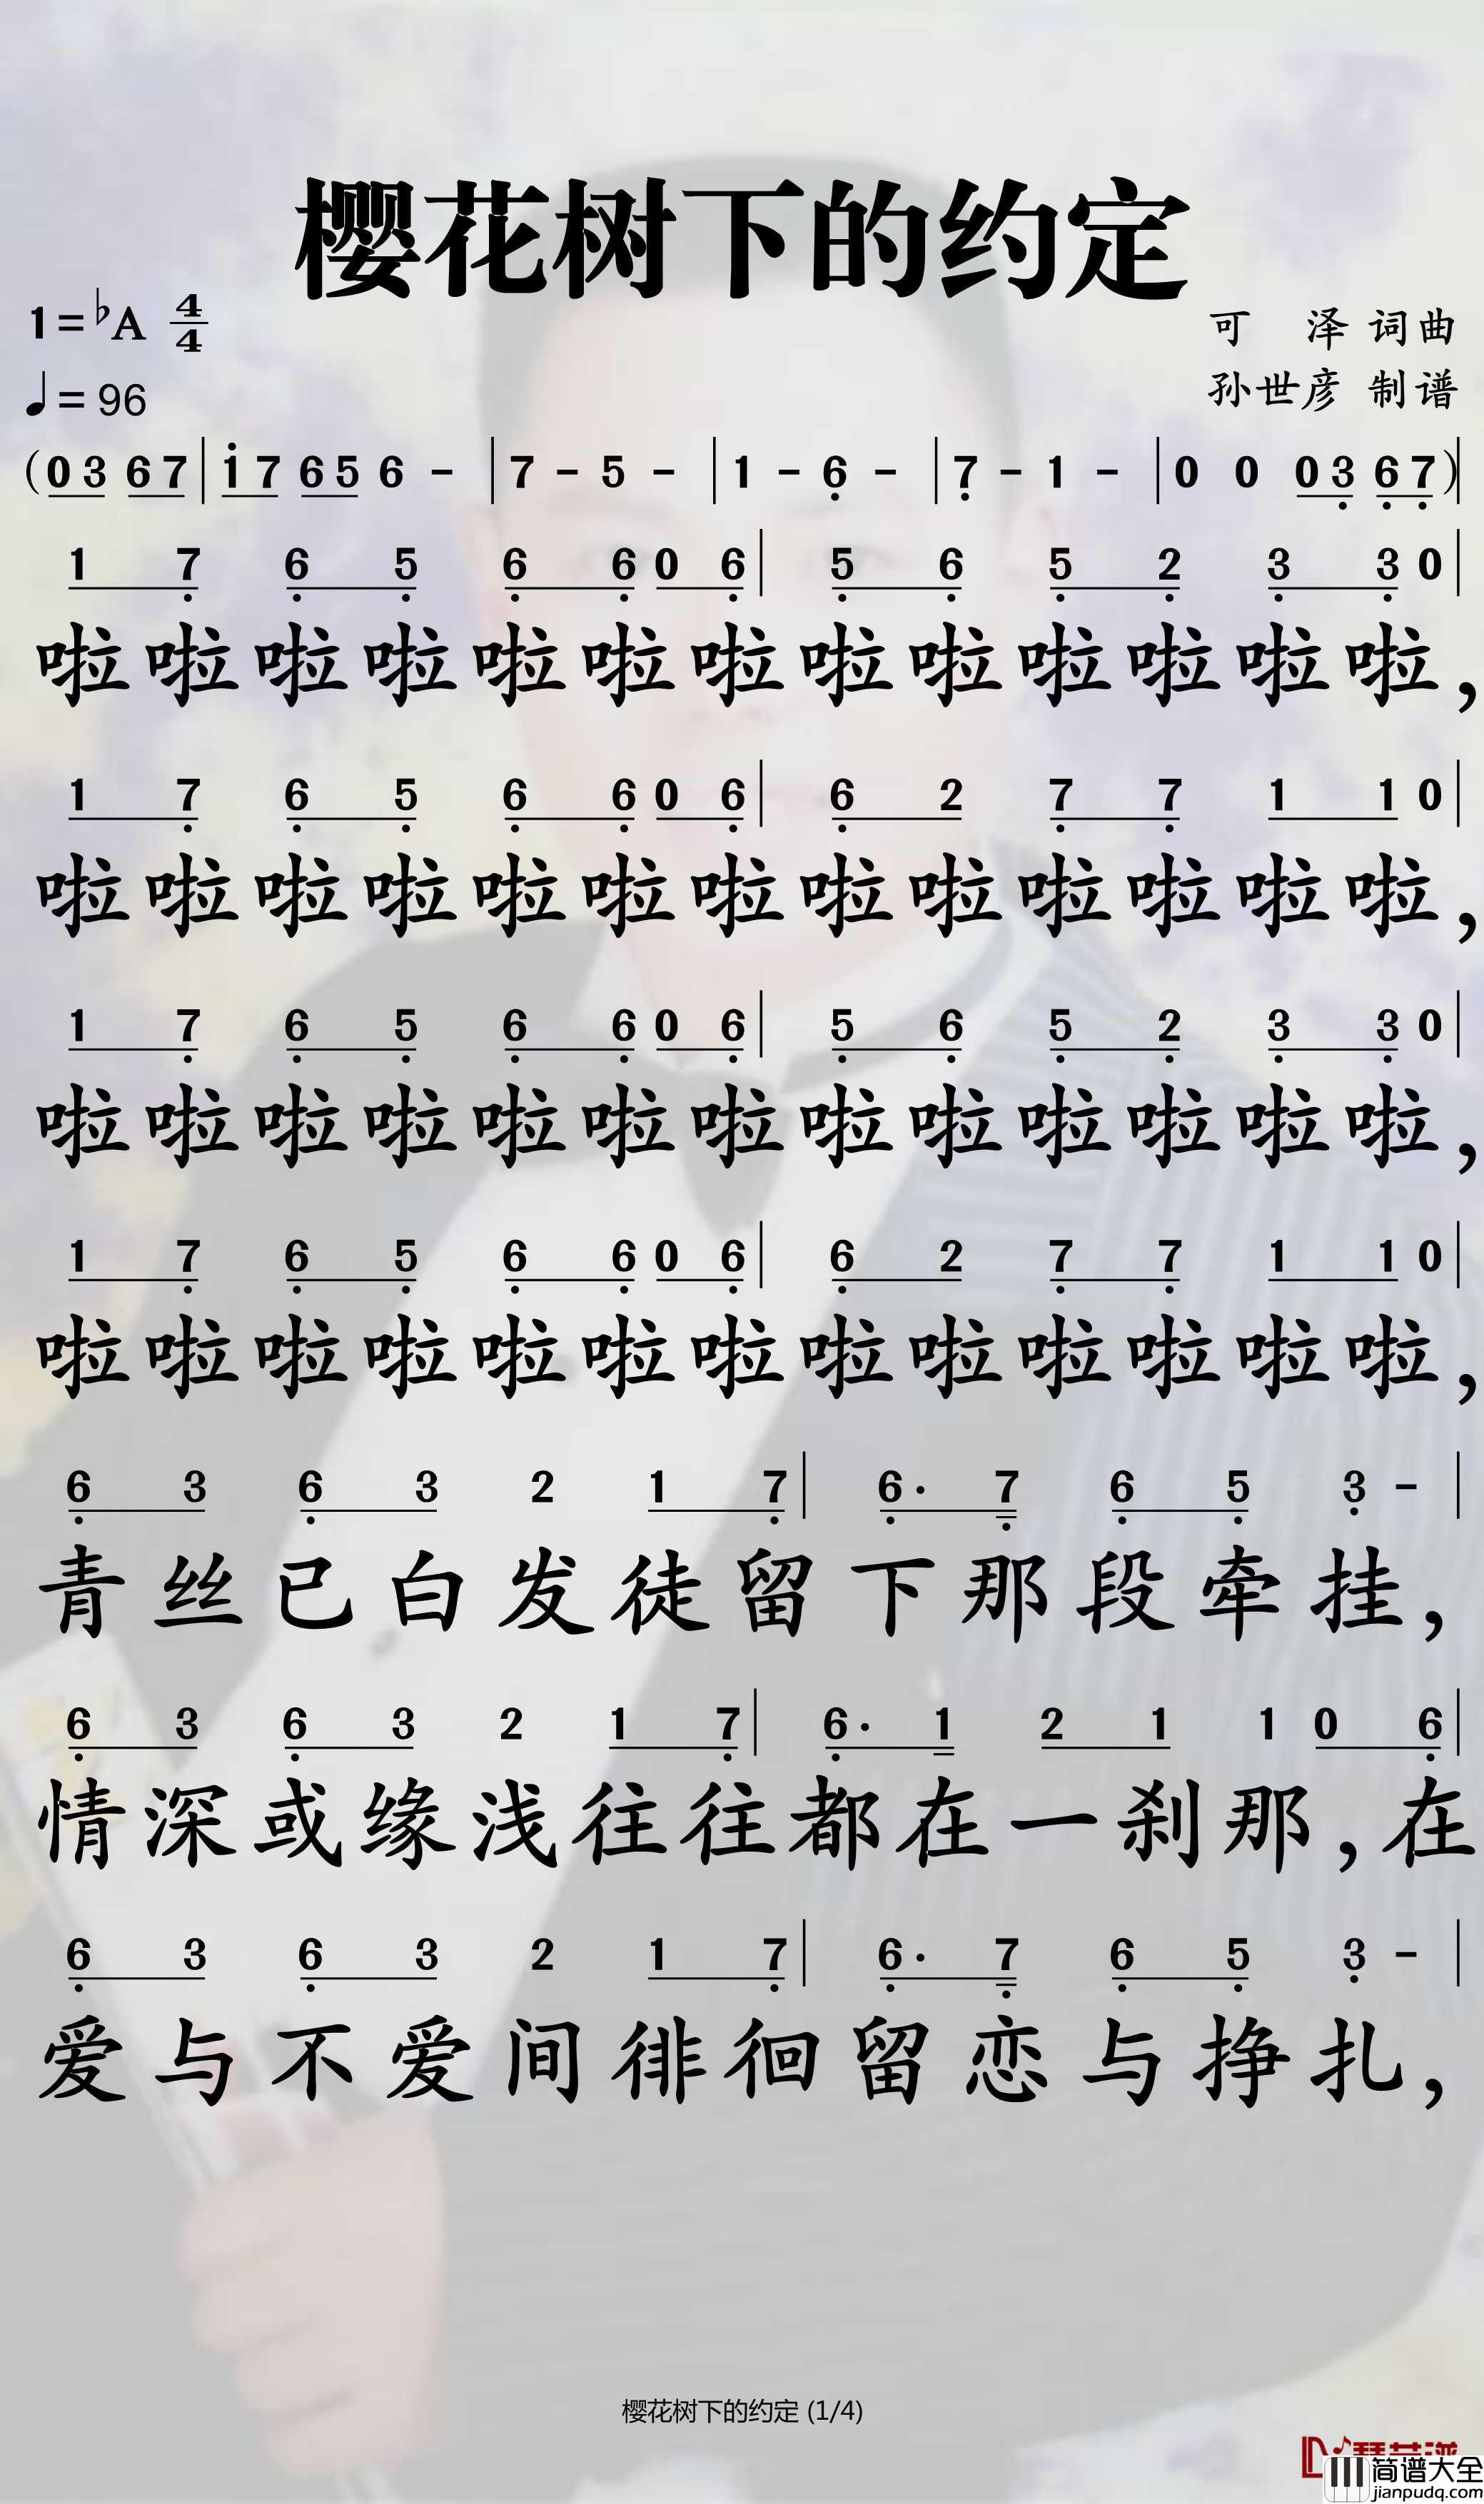 樱花树下的约定
1=♭A 4/4
可 泽 词曲
♩= 96
孙世彦 制谱
(0 3 6 7 | 1̇ 7 6 5 6 - | 7 - 5 - | 1 - 6̣ - | 7̣ - 1 - | 0 0 0 3̣ 6̣ 7̣ ) |
1 7̣ 6̣ 5̣ 6̣ 6̣ 0 6̣ | 5̣ 6̣ 5̣ 2̣ 3̣ 3̣ 0 |
啦啦啦啦啦啦啦啦啦啦啦啦啦，
1 7̣ 6̣ 5̣ 6̣ 6̣ 0 6̣ | 6̣ 2 7̣ 7̣ 1 1 0 |
啦啦啦啦啦啦啦啦啦啦啦啦啦，
1 7̣ 6̣ 5̣ 6̣ 6̣ 0 6̣ | 5̣ 6̣ 5̣ 2̣ 3̣ 3̣ 0 |
啦啦啦啦啦啦啦啦啦啦啦啦啦，
1 7̣ 6̣ 5̣ 6̣ 6̣ 0 6̣ | 6̣ 2 7̣ 7̣ 1 1 0 |
啦啦啦啦啦啦啦啦啦啦啦啦啦，
6̣ 3 6̣ 3 2 1 7̣ | 6̣· 7̣ 6̣ 5̣ 3̣ - |
青丝已白发徒留下那段牵挂，
6̣ 3 6̣ 3 2 1 7̣ | 6̣· 1 2 1 1 0 6̣ |
情深或缘浅往往都在一刹那，在
6̣ 3 6̣ 3 2 1 7̣ | 6̣· 7̣ 6̣ 5̣ 3̣ - |
爱与不爱间徘徊留恋与挣扎，
樱花树下的约定 (1/4)
简谱大全
jianpudq.com